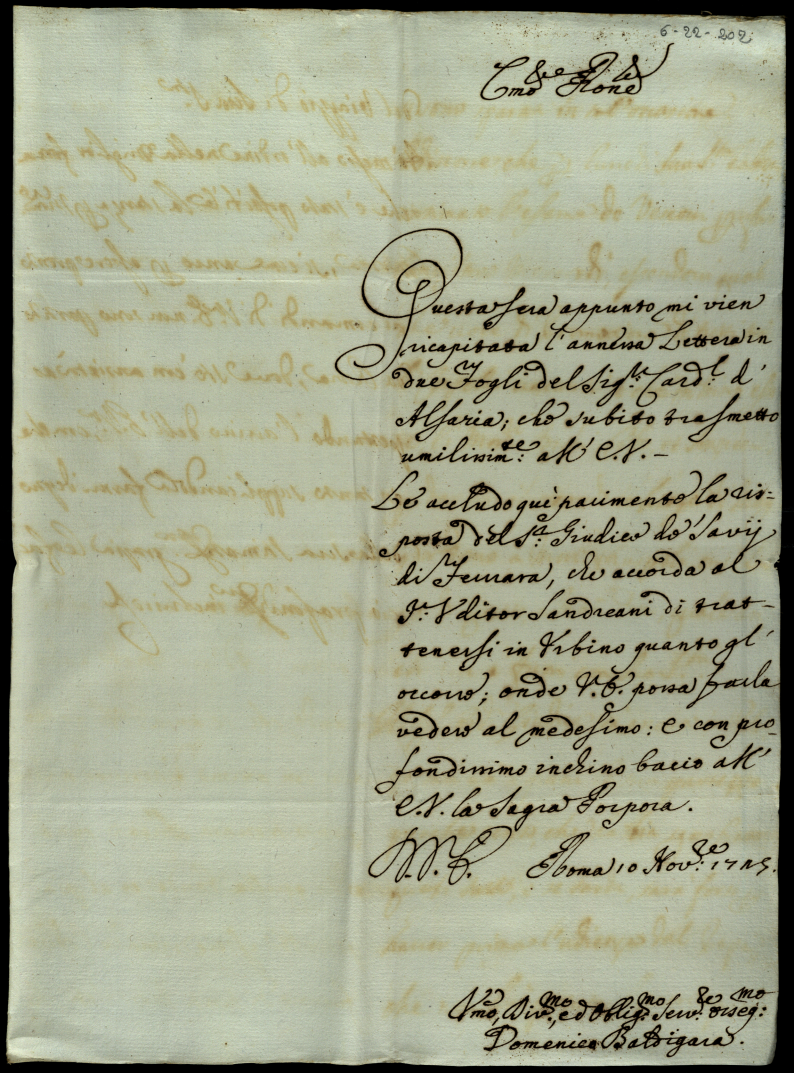 6-22-202
Em.mo e R.mo Prone
Questa sera appunto mi vien
ricapitata l'annessa Lettera in
due Fogli del Sig.r Card.l d'
Alsazia; che subito trasmetto
umilissim.te: all' E.V. –
Le accludo quì parimente la ris=
posta del S.r Giudice de' Savij
di Ferrara, che accorda al
S.r Vditor Sandreani di trat=
tenersi in Vrbino quanto gl'
occorre; onde V.E. possa farla
vedere al medesimo: e con pro=
fondissimo inchino bacio all'
E.V. la Sagra Porpora.
Roma 10 Nov.re: 17
Vmo, Div.mo, ed Oblig.mo Serv.re osseq.mo:
Domenico Baldigara.